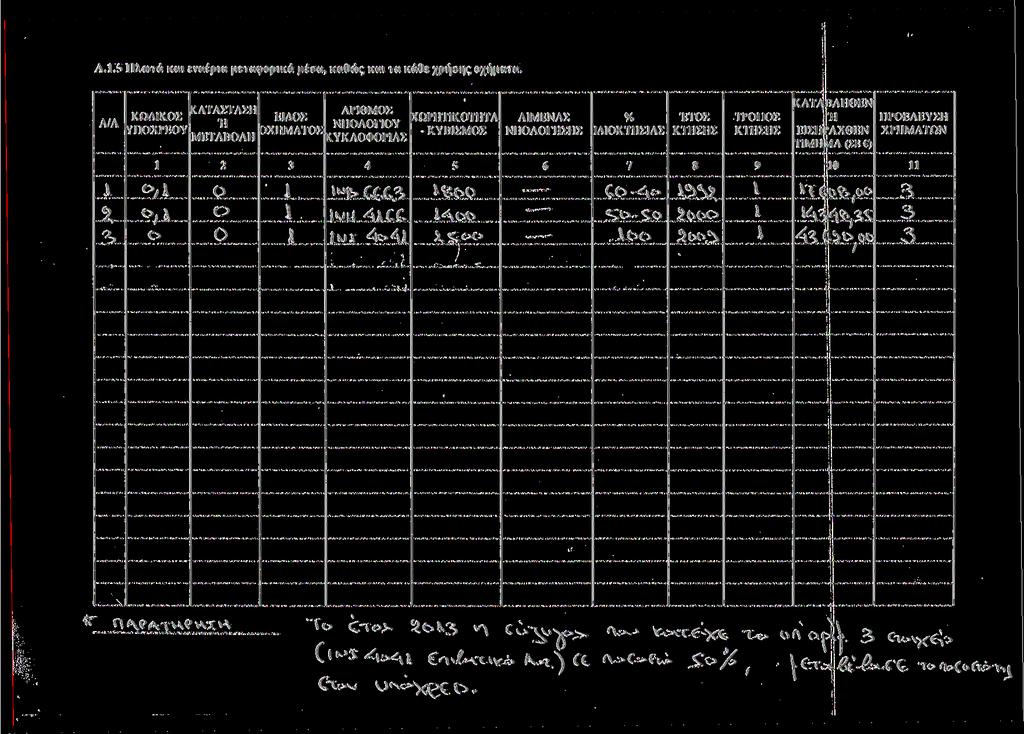 Α.1.5 Πλωτά και εναέρια μεταφορικά μέσα, καθώς και τα κάθε χρήσης οχήματα.
Α/Α ΚΩΔΙΚΟΣ ΥΠΟΧΡΕΟΥ ΚΑΤΑΣΤΑΣΗ Ή ΜΕΤΑΒΟΛΗ ΕΙΔΟΣ ΟΧΗΜΑΤΟΣ ΑΡΙΘΜΟΣ ΝΗΟΛΟΓΙΟΥ ΚΥΚΛΟΦΟΡΙΑΣ ΧΩΡΗΤΙΚΟΤΗΤΑ - ΚΥΒΙΣΜΟΣ ΛΙΜΕΝΑΣ ΝΗΟΛΟΓΗΣΗΣ % ΙΔΙΟΚΤΗΣΙΑΣ ΕΤΟΣ ΚΤΗΣΗΣ ΤΡΟΠΟΣ ΚΤΗΣΗΣ ΚΑΤΑΒΛΗΘΕΝ Ή ΕΙΣΠΡΑΧΘΕΝ ΤΙΜΗΜΑ (ΣΕ €) ΠΡΟΕΛΕΥΣΗ ΧΡΗΜΑΤΩΝ
1 2 3 4 5 6 7 8 9 10 11
1 0,1 0 1 ΙΝΒ 6663 1800 — 60-40 1992 1 3
2 0,1 0 1 ΙΝΗ 4166 1400 — 50-50 2000 1 3
3 0 0 1 ΙΝΙ 4041 1500 — 100 2009 1 3
* ΠΑΡΑΤΗΡΗΣΗ Το έτος 2013 η σύζυγος που κατείχε το υπ' αρ. 3 στοιχείο
(ΙΝΙ 4041 Επιβατικό Αυτ.) σε ποσοστό 50%, μεταβίβασε το ποσοστό της
στον υπόχρεο.